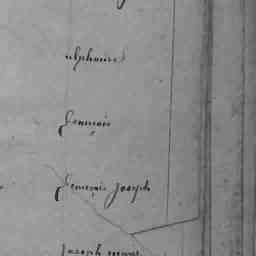 alphonse
françois
françois joseph
joseph marie